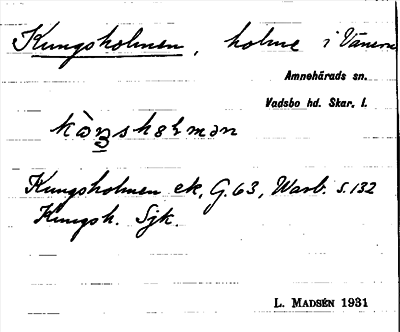 Kungsholmen, holme i Vänern
Amnehärads sn.
Vadsbo hd. Skar. l.
Kungsholmen ek, G. 63, Warb. s. 132
Kungsh. Sjk.
L. MADSÉN 1931